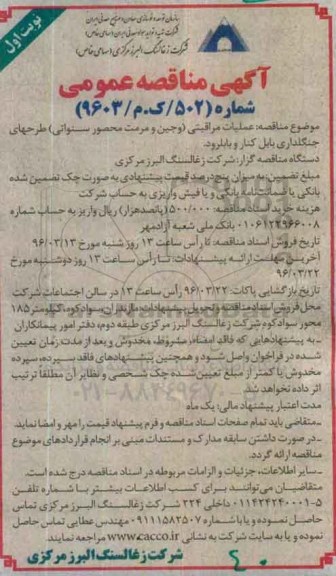 نوبت اول
سازمان توسعه و نوسازی معادن و صنایع معدنی ایران
شرکت تهیه و تولید مواد معدنی ایران (سهامی خاص)
شرکت زغالسنگ البرز مرکزی (سهامی خاص)
آگهی مناقصه عمومی
شماره (۵۰۲/ک.م/۹۶۰۳)
موضوع مناقصه: عملیات مراقبتی (وجین و مرمت محصور سنواتی) طرحهای
جنگلداری بابل کنار و بابلرود.
دستگاه مناقصه گزار: شرکت زغالسنگ البرز مرکزی
مبلغ تضمین: به میزان پنج درصد قیمت پیشنهادی به صورت چک تضمین شده
بانکی یا ضمانت نامه بانکی و یا فیش واریزی به حساب شرکت
هزینه خرید اسناد مناقصه: ۵۰۰/۰۰۰ (پانصدهزار) ریال واریز به حساب شماره
۰۱۰۶۱۲۴۹۶۶۰۰۸ بانک ملی شعبه آزادمهر
تاریخ فروش اسناد مناقصه: تا رأس ساعت ۱۳ روز شنبه مورخ ۹۶/۰۳/۱۳
آخرین مهلت ارائه پیشنهادات: تا رأس ساعت ۱۳ روز دوشنبه مورخ
۹۶/۰۳/۲۲
تاریخ بازگشایی پاکات: ۹۶/۰۳/۲۲ رأس ساعت ۱۳ در سالن اجتماعات شرکت
محل فروش اسناد مناقصه و تحویل پیشنهادات: مازندران، سوادکوه، کیلومتر ۱۸۵
محور سوادکوه شرکت زغالسنگ البرز مرکزی طبقه دوم، دفتر امور پیمانکاران
ـ به پیشنهادهایی که فاقد امضاء، مشروط، مخدوش و بعد از مدت زمان تعیین
شده در فراخوان واصل شود و همچنین پیشنهادهای فاقد سپرده، سپرده
مخدوش یا کمتر از مبلغ تعیین شده چک شخصی و نظایر آن مطلقاً ترتیب
اثر داده نخواهد شد.
مدت اعتبار پیشنهاد مالی: یک ماه
ـ متقاضی باید تمام صفحات اسناد مناقصه و فرم پیشنهاد قیمت را مهر و امضا نماید.
ـ در صورت داشتن سابقه مدارک و مستندات مبنی بر انجام قراردادهای موضوع
مناقصه ارائه گردد.
ـ سایر اطلاعات، جزئیات و الزامات مربوطه در اسناد مناقصه درج شده است.
متقاضیان می‌توانند برای کسب اطلاعات بیشتر با شماره تلفن
۵-۰۱۱۴۲۴۲۴۰۰۰۱ داخلی ۲۲۴ شرکت زغالسنگ البرز مرکزی تماس
حاصل نموده و یا با شماره ۰۹۱۱۱۵۸۳۵۰۷ مهندس عطایی تماس حاصل
نموده و یا به سایت شرکت به نشانی www.cacco.ir مراجعه نمایند.
شرکت زغالسنگ البرز مرکزی